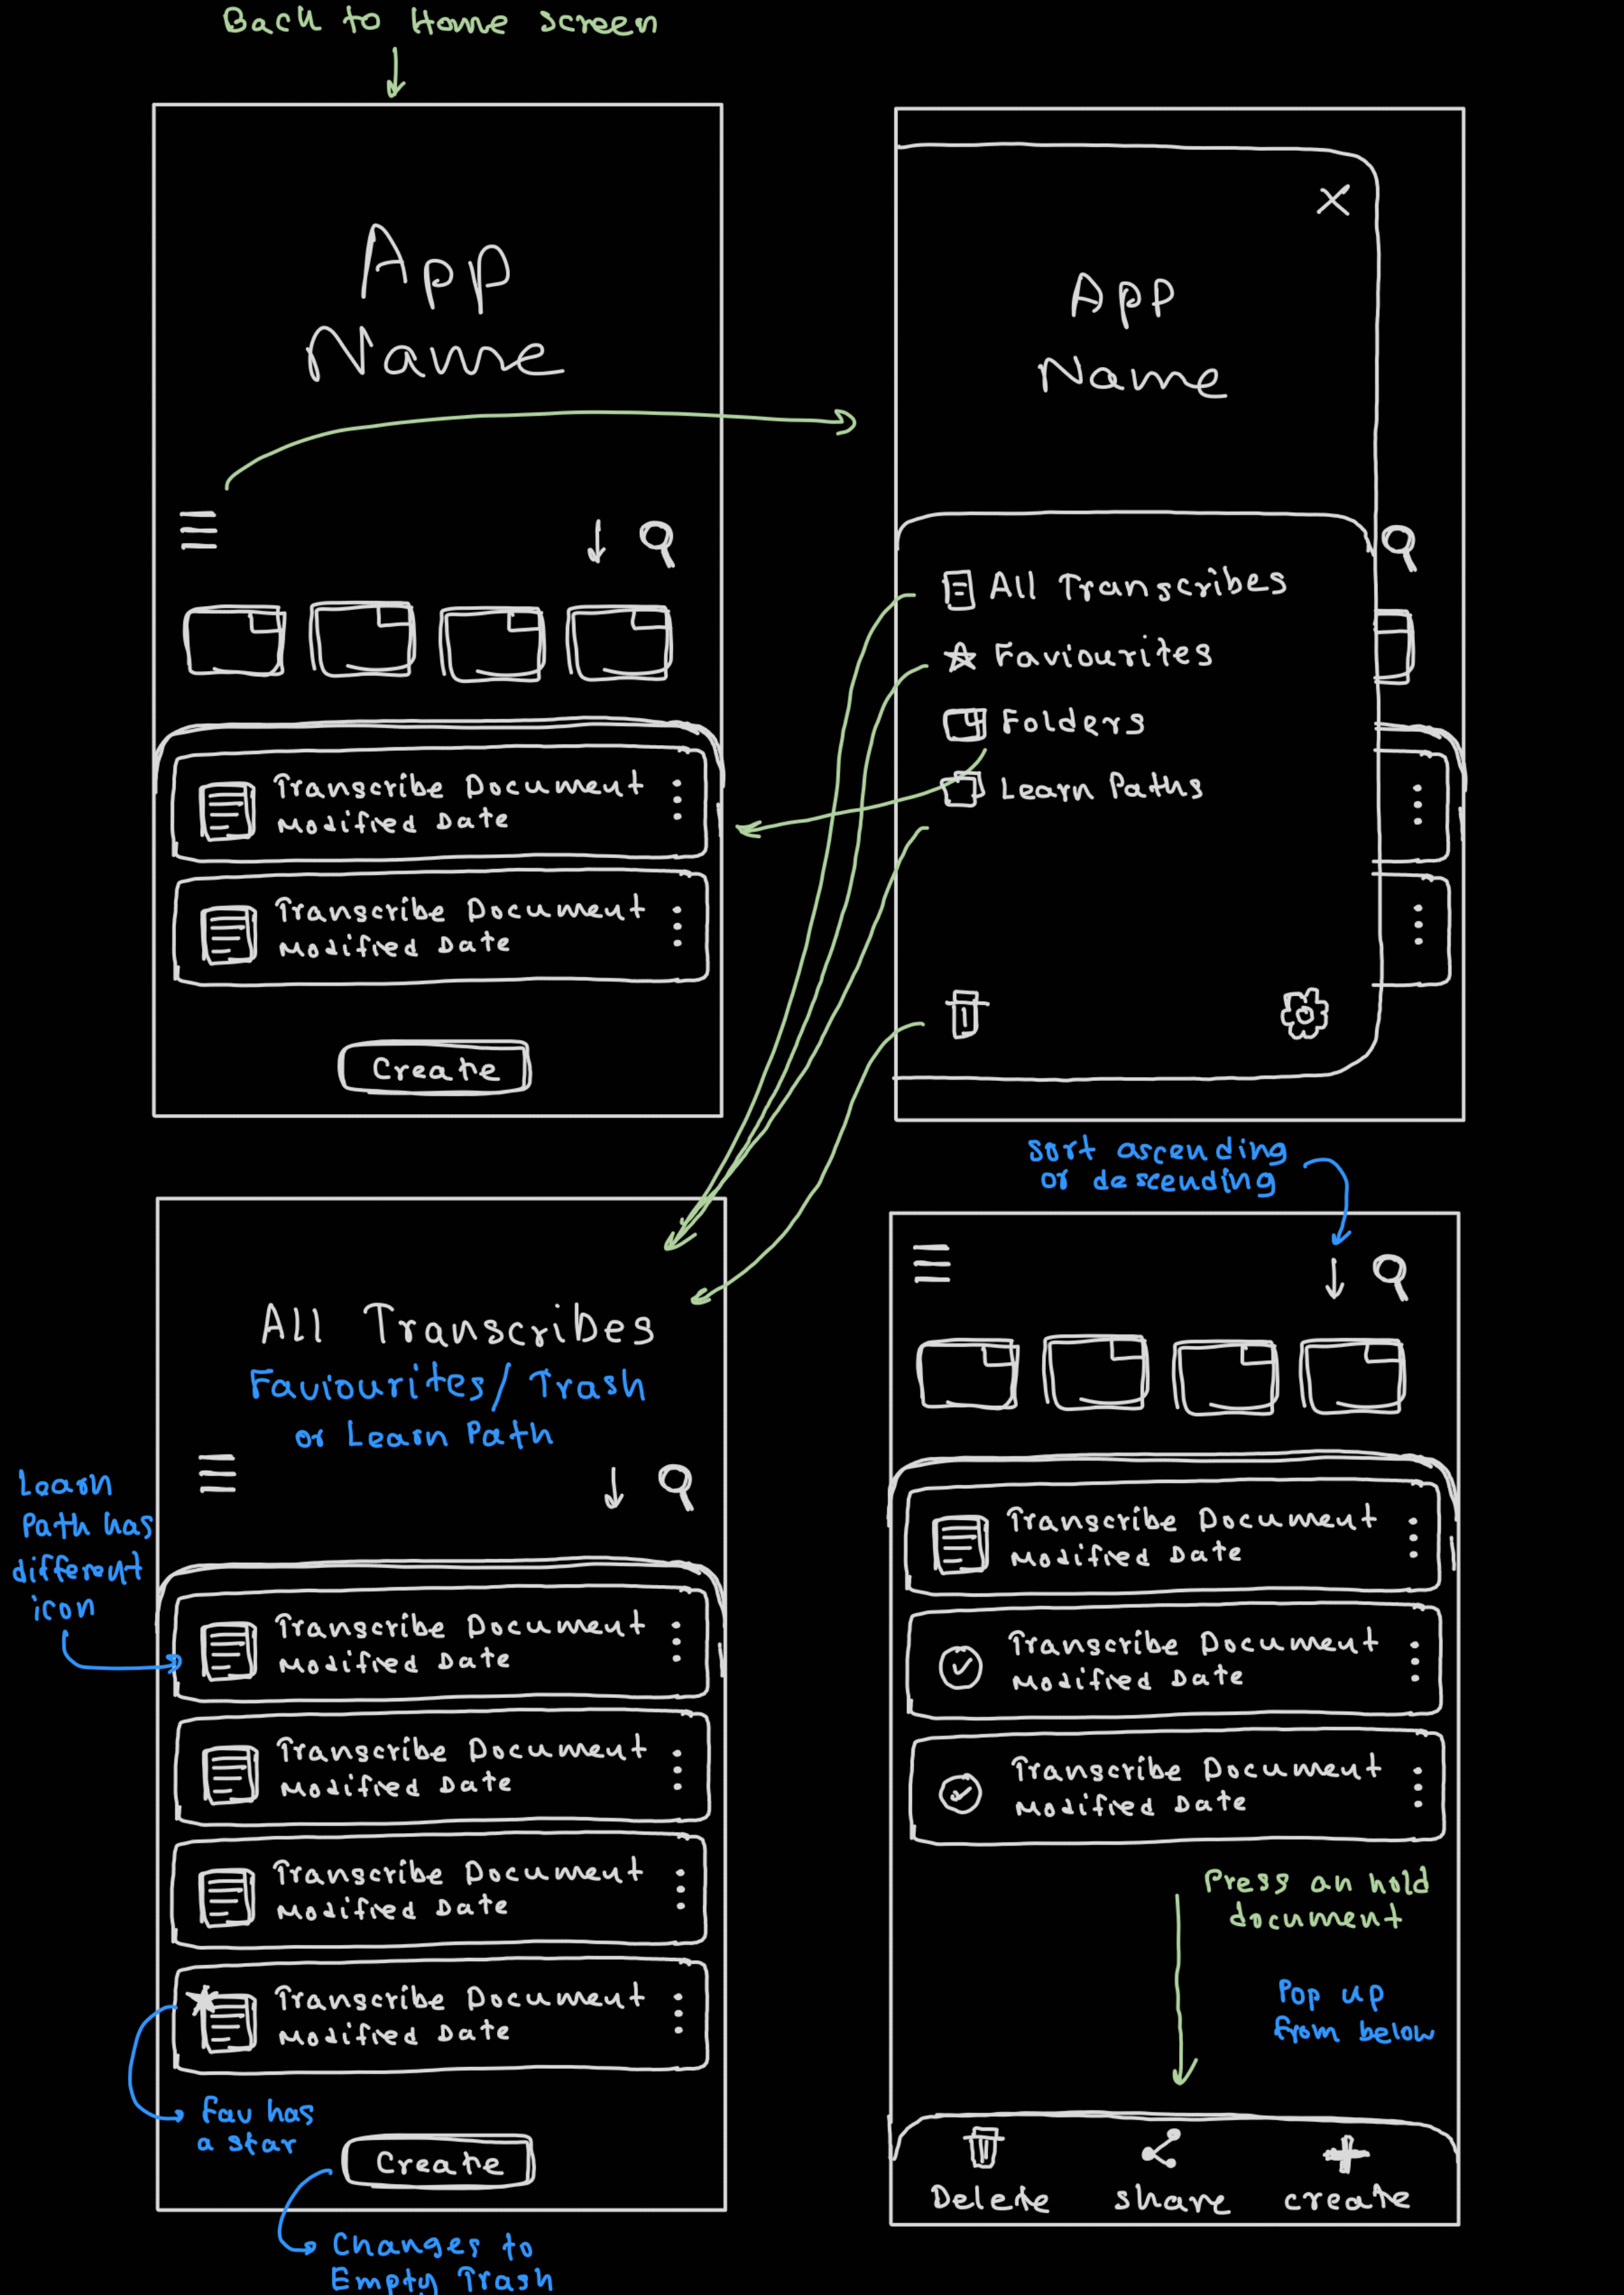 Back to Home screen
App
Name
Transcribe Document
Modified Date
Transcribe Document
Modified Date
Create
App
Name
All Transcribes
Faviourites
Folders
Learn Paths
Sort ascending
or descending
All Transcribes
Faviourites/ Trash
or Learn Path
Learn
Path has
different
icon
Transcribe Document
Modified Date
Transcribe Document
Modified Date
Transcribe Document
Modified Date
Transcribe Document
Modified Date
Fav has
a star
Create
Changes to
Empty Trash
Transcribe Document
Modified Date
Transcribe Document
Modified Date
Transcribe Document
Modified Date
Press an hold
document
Pop up
from below
Delete share create